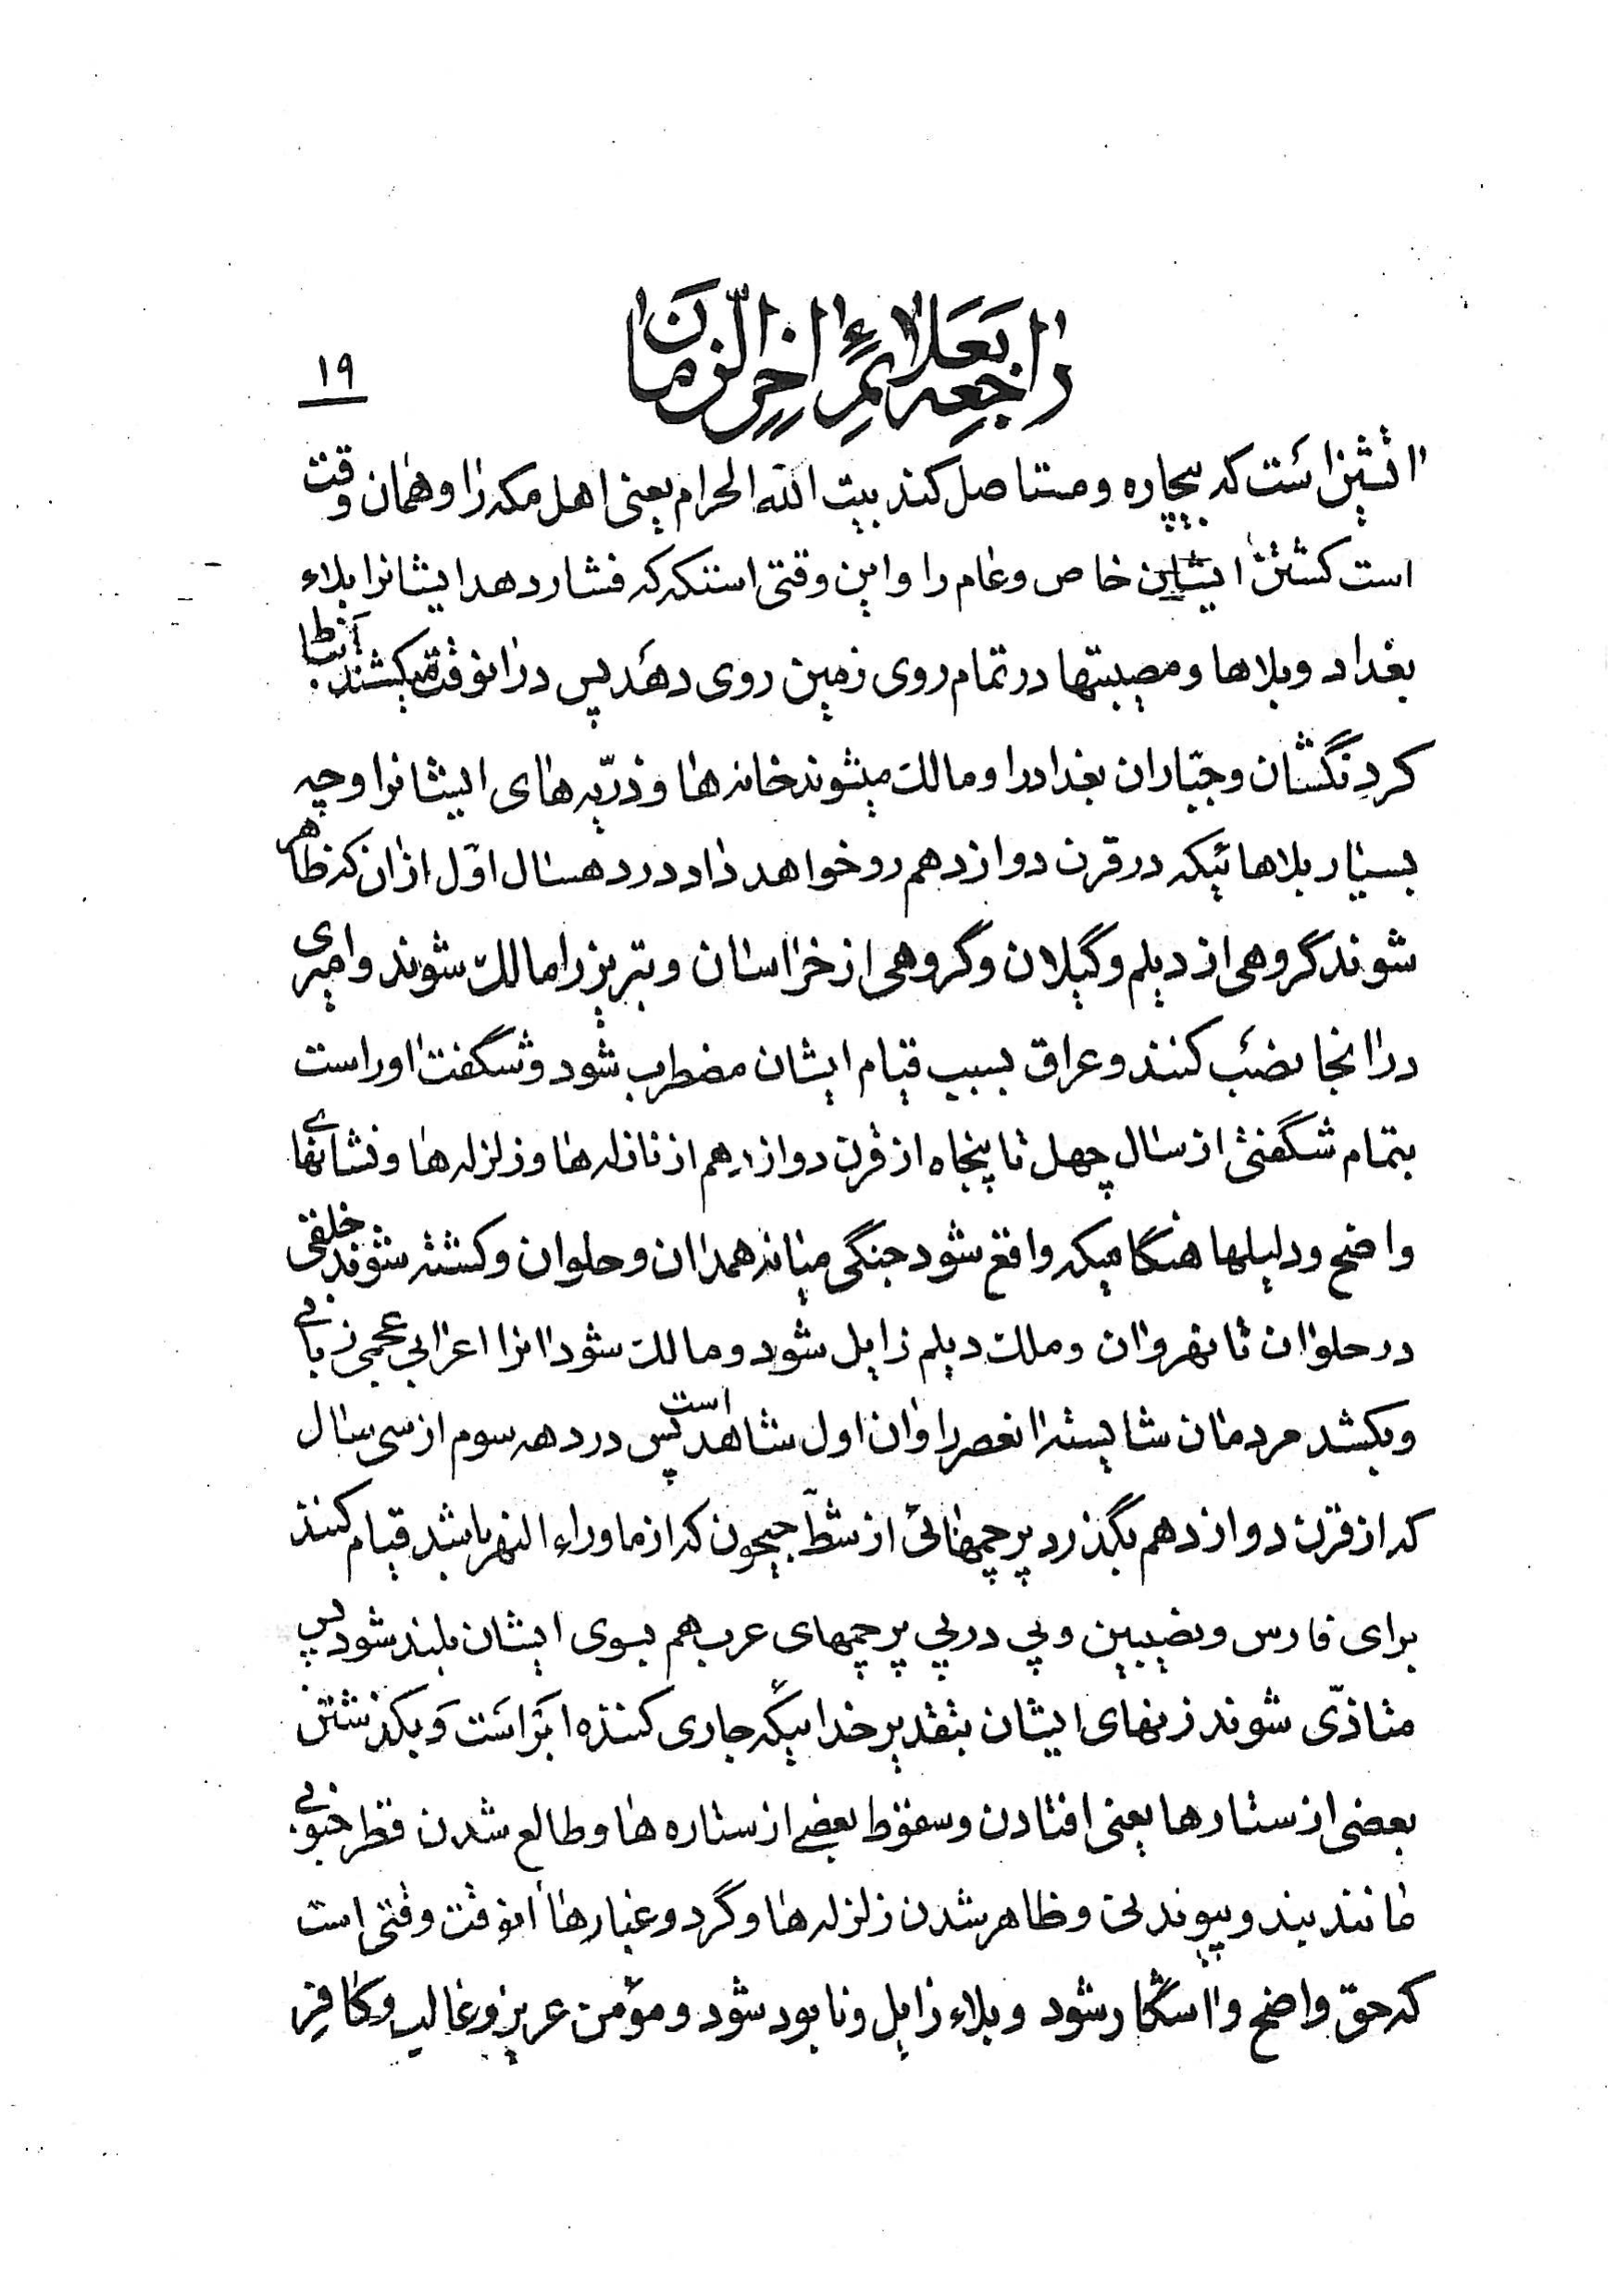 راجعه بعلائم اخر الزمان
۱۹
است که بیچاره و مستاصل کند بیت الله الحرام یعنی اهل مکه را و همان وقت
است کشتن ایشان خاص و عام را و این وقتی استکه که فشار دهد ایشانرا بلاء
بغداد و بلاها و مصیبتها در تمام روی زمین روی دهد پس درانوقت میکشند
گردنکشان و جبّاران بغداد را و مالک میشوند خانه ها و ذرّیه های ایشانرا و چه
بسیار بلاهائیکه در قرن دوازدهم رو خواهد داد در دهسال اوّل ازان که ظاهر
شوند گروهی از دیلم و گیلان و گروهی از خراسان و تبریز را مالک شوند و امیری
درانجا نصب کنند و عراق بسبب قیام ایشان مضطرب شود و شگفت اوراست
بتمام شگفتی از سال چهل تا پنجاه از قرن دوازدهم از نازله ها و زلزله ها و نشانهای
واضح و دلیلها هنگامیکه واقع شود جنگی میانه همدان و حلوان و کشته شوند خلقی
در حلوان تا نهروان و ملک دیلم زایل شود و مالک شود انرا اعرابی عجمی زبانی
و بکشد مردمان شایسته انعصر را وان اول شاهد است پس در دهه سوم از سی سال
که از قرن دوازدهم بگذرد پرچمهائی از شطّ جیحون که از ماوراء النهر باشد قیام کنند
برای فارس و نصیبین و پی در پی پرچمهای عرب هم بسوی ایشان بلند شود پس
متاذّی شوند زنهای ایشان بتقدیر خدائیکه جاری کننده ابر است و بگذشتن
بعضی از ستارها یعنی افتادن و سقوط بعضی از ستاره ها و طالع شدن قطر جنوبی
مانند بند و پیوند نی و ظاهر شدن زلزله ها و گرد و غبارها انوقت وقتی است
که حق واضح و اشکار شود و بلاء زایل و نابود شود و مؤمن عزیز و غالب و کافر